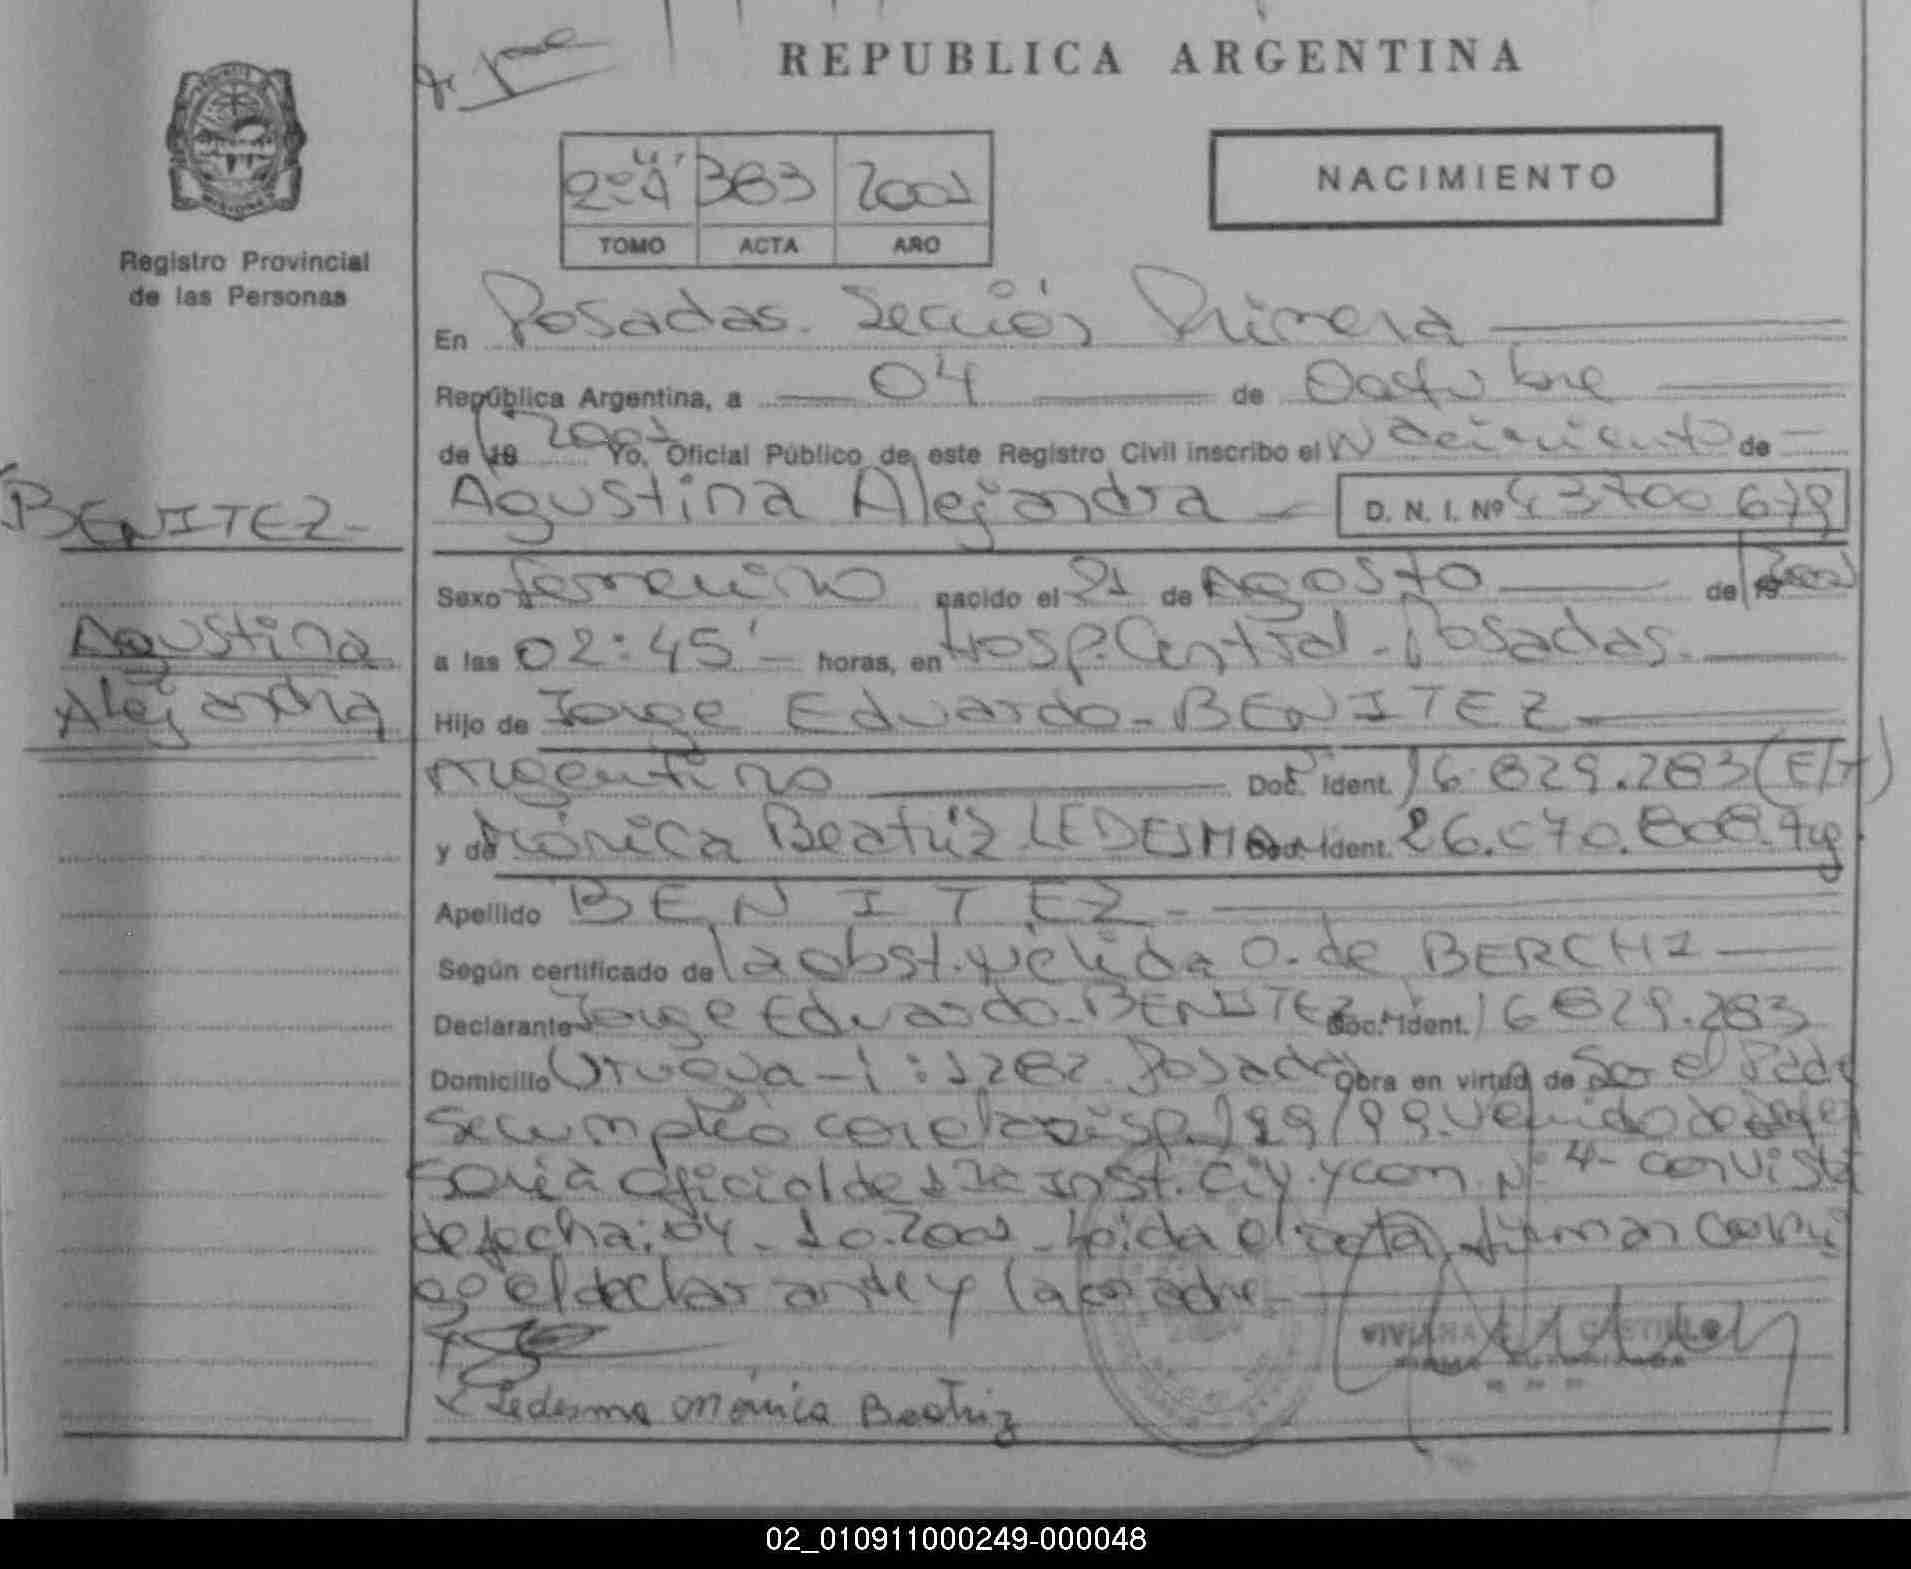 REPUBLICA ARGENTINA
MISIONES
Registro Provincial
de las Personas
2º "A" 383 2001
TOMO ACTA AÑO
NACIMIENTO
En Posadas. Sección Primera
República Argentina, a 04 de Octubre
de 19 2001 Yo, Oficial Público de este Registro Civil inscribo el Nacimiento de
BENITEZ-
Agustina Alejandra D. N. I. Nº 43700679
Sexo femenino nacido el 21 de Agosto de 19 2001
Agustina
a las 02:45' horas, en Hosp. Central - Posadas.
Alejandra
Hijo de Jorge Eduardo - BENITEZ
Argentino Doc. Ident. 16.829.283 (E/T)
y de Mónica Beatriz LEDESMA Doc. Ident. 26.070.808. Arg
Apellido BENITEZ -
Según certificado de la obst. Nélida O. de BERCHI
Declarante Jorge Eduardo - BENITEZ Doc. Ident. 16829.283
Domicilio 1282. Posadas Obra en virtud de Ser el Padre
Se cumpleó con la Disp. 199/99. Venido de defen
soria oficial de 1ra Inst. Civ. y com. Nº 4 - con vista
de fecha: 04 - 10. 2001 - Leída el acta, firman conmi
go el declarante y la madre -
Ledesma Mónica Beatriz
VIVIANA CASTILLO
02_010911000249-000048